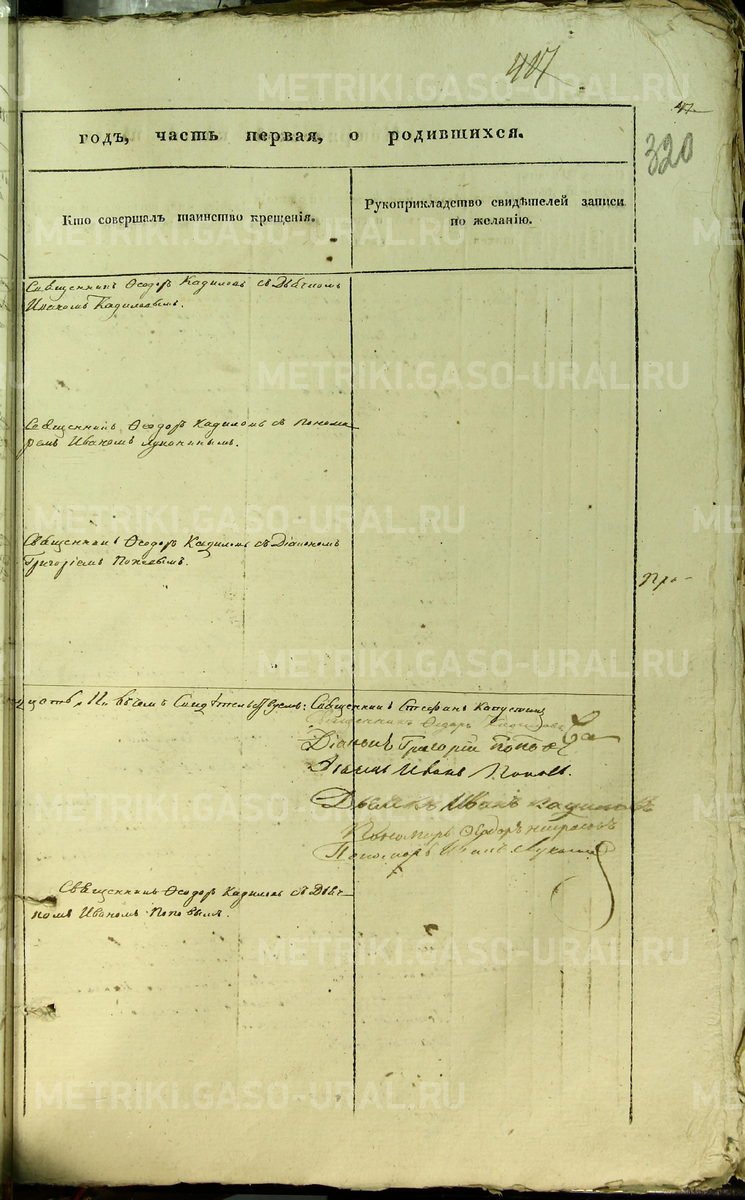 417
47.
320
годъ, часть первая, о родившихся.
Кто совершалъ таинство крещенія.
Рукоприкладство свидѣтелей записи
по желанію.
Священникъ Ѳеодоръ Кадиловъ съ Дьячкомъ
Иваномъ Кадиловымъ.
Священникъ Ѳеодоръ Кадиловъ съ Понома-
ремъ Иваномъ Лукинымъ.
Священникъ Ѳеодоръ Кадиловъ съ Діакономъ
Григоріемъ Поповымъ.
Свидѣтельствуемъ: Священникъ Стефанъ Капустинъ
Священникъ Ѳедоръ
Діаконъ Григорій Поповъ
Діаконъ Иванъ Поповъ.
Дьячекъ Иванъ Кадиловъ
Пономарь Ѳедоръ
Пономарь Иванъ
Священникъ Ѳеодоръ Кадиловъ съ Дьяч-
комъ Иваномъ Поповымъ.
METRIKI.GASO-URAL.RU